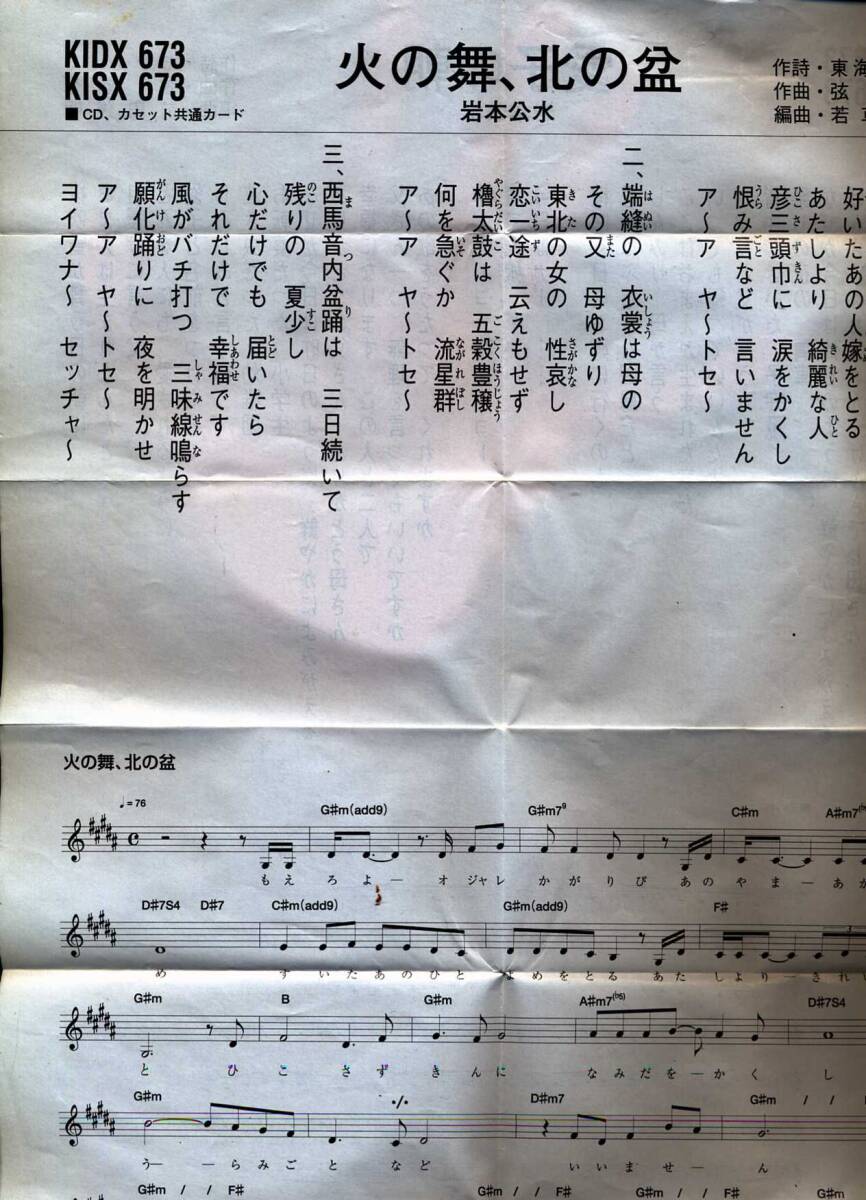 KIDX 673
KISX 673
■CD、カセット共通カード
火の舞、北の盆
岩本公水
作詩・東海
作曲・弦
編曲・若
好いたあの人嫁をとる
あたしより 綺麗な人
彦三頭巾に 涙をかくし
恨み言など 言いません
ア〜ア ヤ〜トセ〜
二、端縫の 衣裳は母の
その又 母ゆずり
東北の女の 性哀し
恋一途 云えもせず
櫓太鼓は 五穀豊穣
何を急ぐか 流星群
ア〜ア ヤ〜トセ〜
三、西馬音内盆踊は 三日続いて
残りの 夏少し
心だけでも 届いたら
それだけで 幸福です
風がバチ打つ 三味線鳴らす
願化踊りに 夜を明かせ
ア〜ア ヤ〜トセ〜
ヨイワナ〜 セッチャ〜
火の舞、北の盆
♩=76
G#m(add9) G#m7 9 C#m A#m7
もえろよ— オジャレ かがりび あのやま—あか
D#7S4 D#7 C#m(add9) G#m(add9) F#
め すいたあのひと よめをとる あたしより—きれ
G#m B G#m A#m7(b5) D#7S4
と ひこ さずきんに なみだを—かく し
G#m D#m7 G#m / /
う——らみごと など いいませ—ん
G#m / / F# G#m / / F#